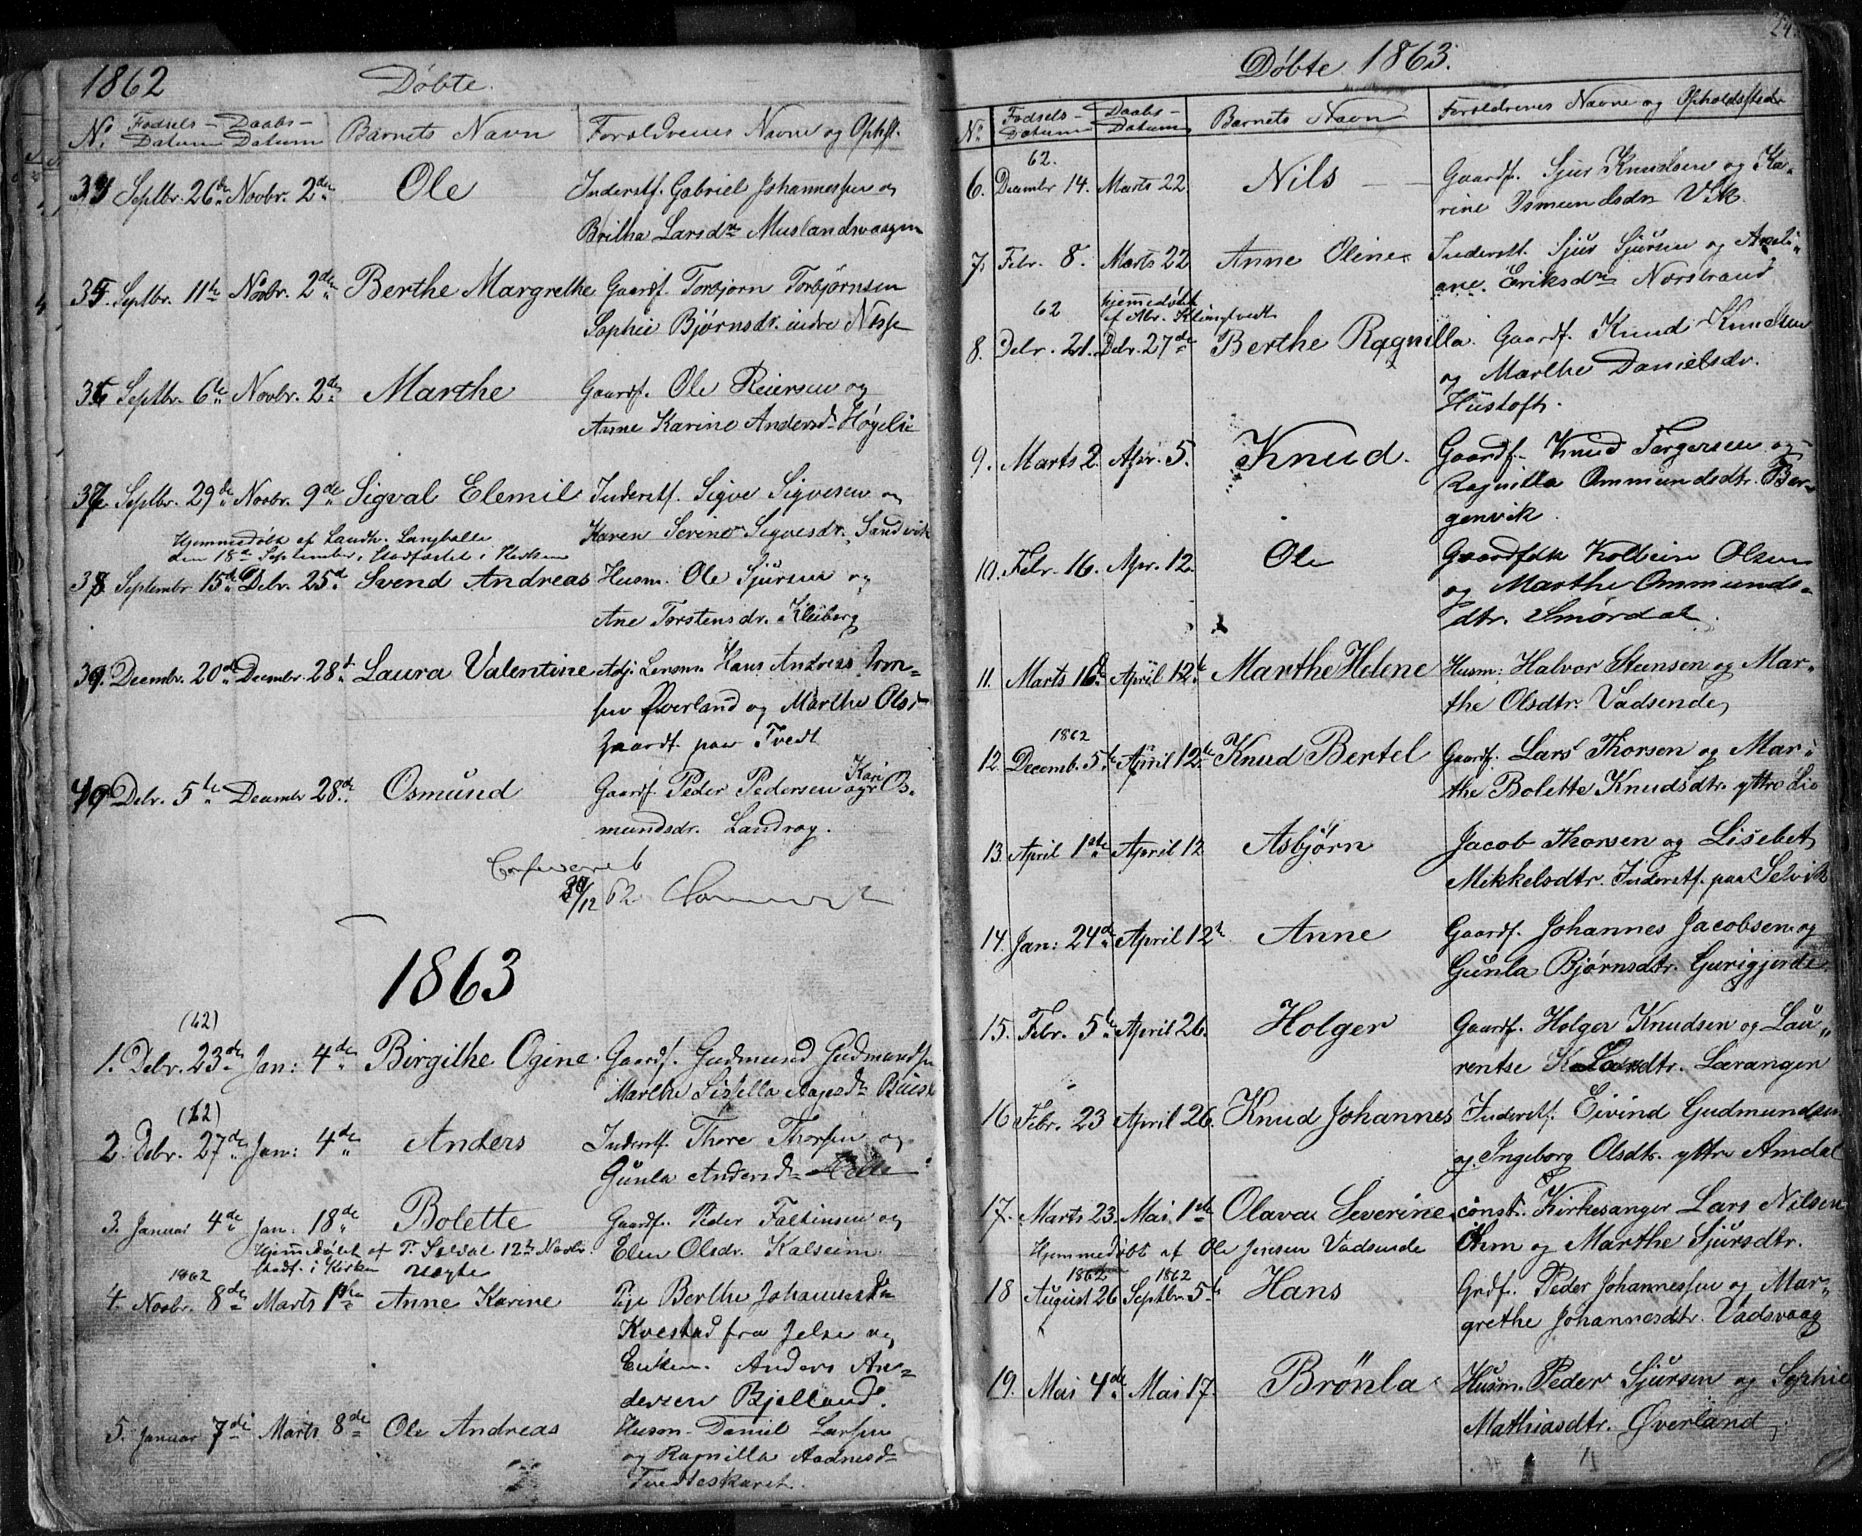 1862 Døbte.
No. Fødsels-Datum Daabs-Datum Barnets Navn Forældrenes Navne og Opholdst.
Septbr. 26de Novbr. 2den Ole Inderstf. Gabriel Johannessen og
Britha Larsdr Muslandsvaagen
35. Septbr. 11te Novbr. 2den Berthe Margrethe Gaardf. Torbjørn Torbjørnsen
Sophie Bjørnsdr. indre
36 Septbr. 6te Novbr. 2den Marthe Gaardf. Ole Reiersen og
Anne Karine Andersdr Høgelie
37 Septbr. 29de Novbr. 9de Sigval Elemil Inderstf. Sigve Sigvesen og
Karen Serine Sigvesdr. Sandvik
Hjemmedøbt af Landh. Langballe
den 18de September, stadfæstet i Kirken
38 Septembr 15de Debr. 25de Svend Andreas Husm. Ole Sjursen og
Ane Torstensdr. Kleiberg
39. Decembr. 20de Decembr. 28de Laura Valentine Adj. Lensm. Hans Andreas
Øverland og Marthe Olsdr
Gaardf. paa Tvedt
40 Debr. 5te Decembr 28de Osmund Gaardf. Peder Pedersen og Kari Os-
mundsdr. Landrog.
Confereret
/12 62
1863
(62)
1. Debr. 23de Jan: 4de Birgithe Ogine. Gaardf. Gudmund Gudmundsen
Marthe Sissella Aagesdr
(62)
2. Debr. 27de Jan: 4de Anders Inderstf. Thore Thorsen og
Gunla Andersdr
3. Januar 4de Jan. 18de Bolette Gaardf. Peder Faltinsen og
Elen Olsdr. Kalseim
Hjemmedøbt af T. 12te Novbr
stadf. i Kirken Uægte
1862
4. Novbr. 8de Marts 1ste Anne Karine Pige Berthe Johannesdr
Kvestad fra Jelse og
Enkem. Anders An-
dersen Bjelland.
5. Januar 7de Marts 8de Ole Andreas Husm. Daniel Larsen
og Ragnilla Aadnesdr
Tvedteskaret.
24.
Døbte 1863.
No. Fødsels-Datum Daabs-Datum Barnets Navn Forældrenes Navne og Opholdssteder
62.
6. Decembr 14. Marts 22. Nils Gaardf. Sjur Knudsen og Ka-
rine Osmundsdr Vik.
7. Febr. 8. Marts 22 Anne Oline. Inderstf. Sjur Sjursen og
ane. Eriksdr Norstrand
62 hjemmedøbt
af Abr. Klungtvedt
8. Debr. 21. Debr. 27de Berthe Ragnilla. Gaardf. Knud Knudsen
og Marthe Danielsdr.
Hustoft.
9. Marts 2. Apr. 5. Knud. Gaardf. Knud Torgersen og
Ragnilla Ommundsdtr. Ber-
genvik.
10. Febr. 16. Apr. 12. Ole Gaardfolk Kolbein Olsen
og Marthe Ommunds-
dtr. Smørdal.
11. Marts 16de April 12te Marthe Helene Husm: Halvor Steensen og Mar-
the Olsdtr. Vadsende,
1862
12. Decemb. 5te April 12te Knud Bertel Gaardf. Lars Thorsen og Mar-
the Bolette Knudsdtr. yttre Lie
13. April 1ste April 12 Asbjørn Jacob Thorsen og Lisebet
Mikkelsdtr. Inderstf. paa Selvik
14. Jan: 24de April 12te Anne Gaardf. Johannes Jacobsen og
Gunla Bjørnsdtr. Gurigjerde.
15. Febr. 5te April 26. Holger Gaardf. Holger Knudsen og Lau-
rentse Larsdtr. Lærangen
16 Febr. 23 April 26. Knud Johannes Inderstf. Eivind Gudmundsen
og Ingeborg Olsdtr. yttre Amdal
17. Marts 23. Mai. 1ste Olava Severine const. Kirkesanger Lars Nilsen
Øhm og Marthe Sjursdtr.
Hjemmedøbt af Ole Jensen Vadsende
1862 1862
18 August 26 Septbr 5te Hans Grdf. Peder Johannessen og Mar-
grethe Johannesdtr. Vadsvaag
19. Mai 4de Mai 17. Brønla Husm. Peder Sjursen og Sophie
Mathiasdtr. Øverland,